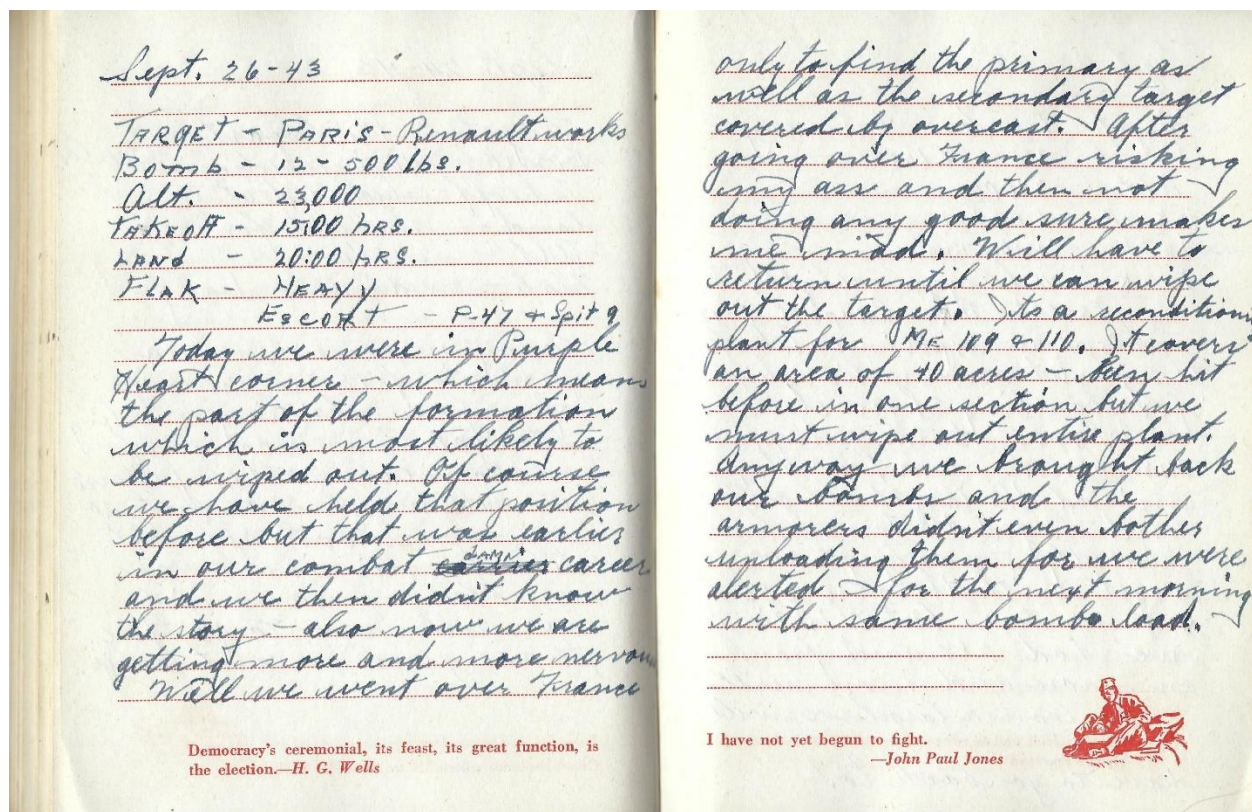 Sept. 26-43
TARGET - PARIS - Renault works
Bomb - 12 - 500 lbs.
Alt. - 23,000
TAKEOFF - 15:00 hRS.
LAND - 20:00 hRS.
FLAK - HEAVY
ESCORT - P-47 & Spit 9
Today we were in Purple
Heart corner - which means
the part of the formation
which is most likely to
be wiped out. Of course
we have held that position
before but that was earlier
DAMN
in our combat career
and we then didn't know
the story - also now we are
getting more and more nervous
Well we went over France
Democracy's ceremonial, its feast, its great function, is
the election.—H. G. Wells
only to find the primary as
well as the secondary target
covered by overcast. After
going over France risking
my ass and then not
doing any good sure makes
me mad. Will have to
return until we can wipe
out the target. Its a
plant for ME 109 & 110. It covers
an area of 40 acres - Been hit
before in one section but we
must wipe out entire plant.
Anyway we brought back
our bombs and the
armorers didn't even bother
unloading them for we were
alerted for the next morning
with same bomb load.
I have not yet begun to fight.
—John Paul Jones